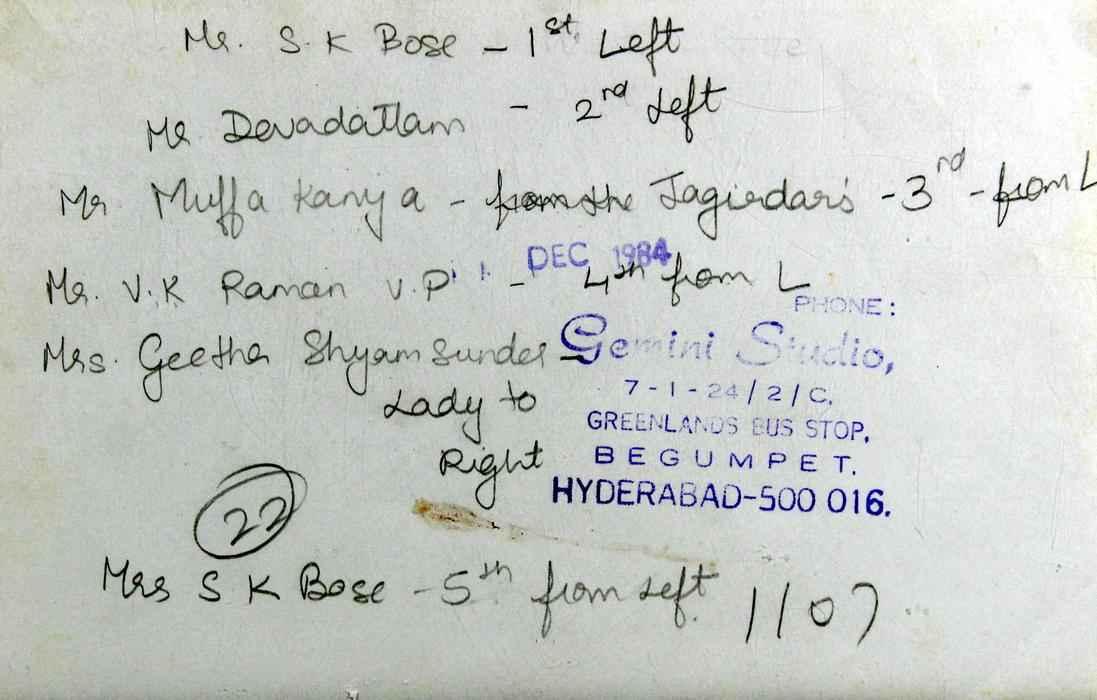 Mr. S.K Bose - 1st Left
Mr Devadattam - 2rd Left
Mr Muffa Kanya - from the Jagirdars - 3rd - from L
DEC 1984
Mr. V.K Raman V.P - 4th from L
PHONE:
Mrs. Geetha Shyam Sunder -
Gemini Studio,
Lady to
7-1-24/2/C,
GREENLANDS BUS STOP,
Right
BEGUMPET.
HYDERABAD-500 016.
22
Mrs S K Bose - 5th from Left
1107